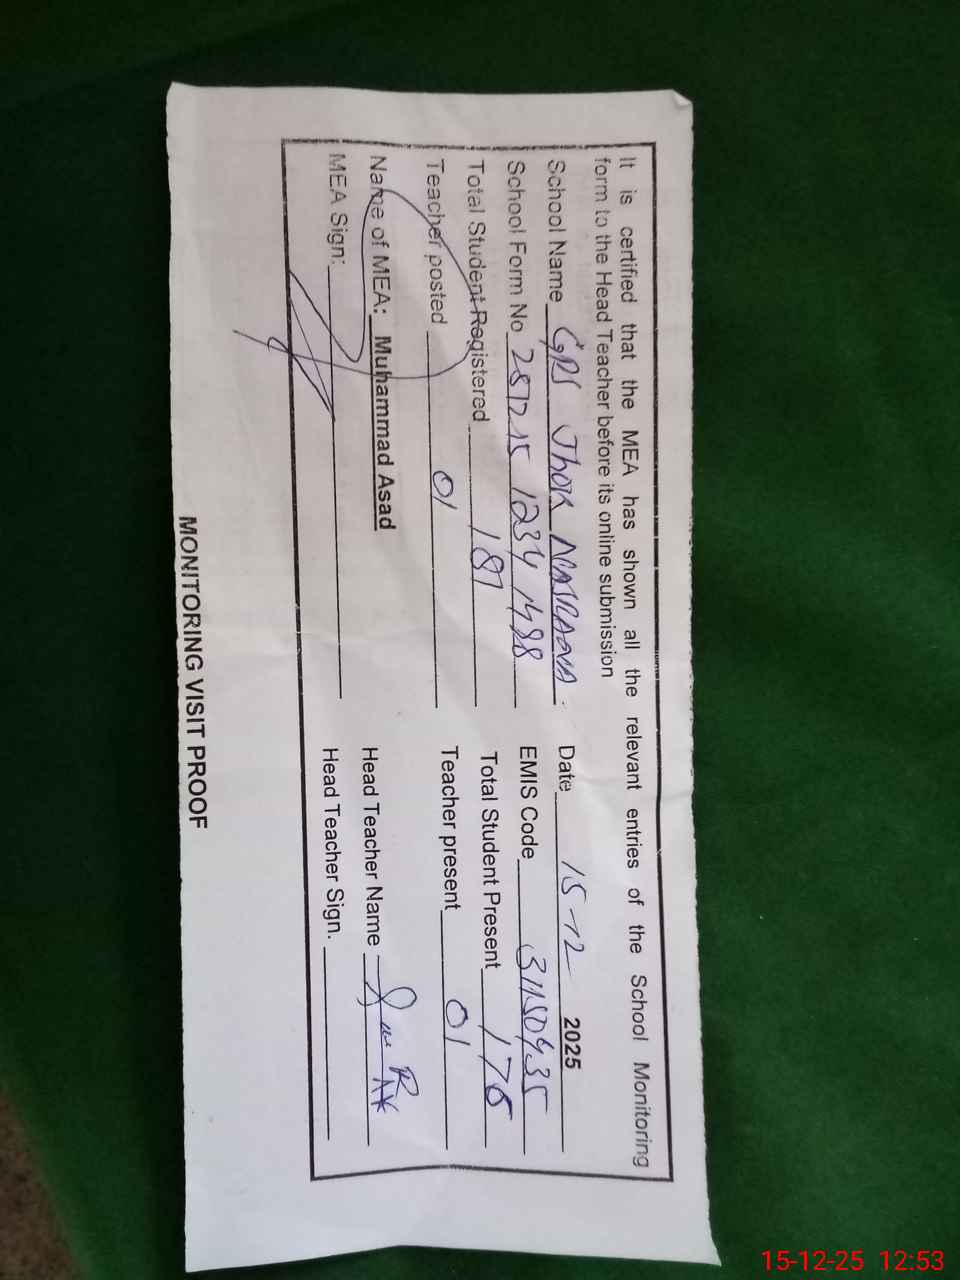 It is certified that the MEA has shown all the relevant entries of the School Monitoring
form to the Head Teacher before its online submission
School Name GPS Jhok Date 15-12 2025
School Form No 287215 1234 1488 EMIS Code 31150435
Total Student Registered 181 Total Student Present 176
Teacher posted 01 Teacher present 01
Name of MEA: Muhammad Asad Head Teacher Name
MEA Sign: Head Teacher Sign.
MONITORING VISIT PROOF
15-12-25 12:53